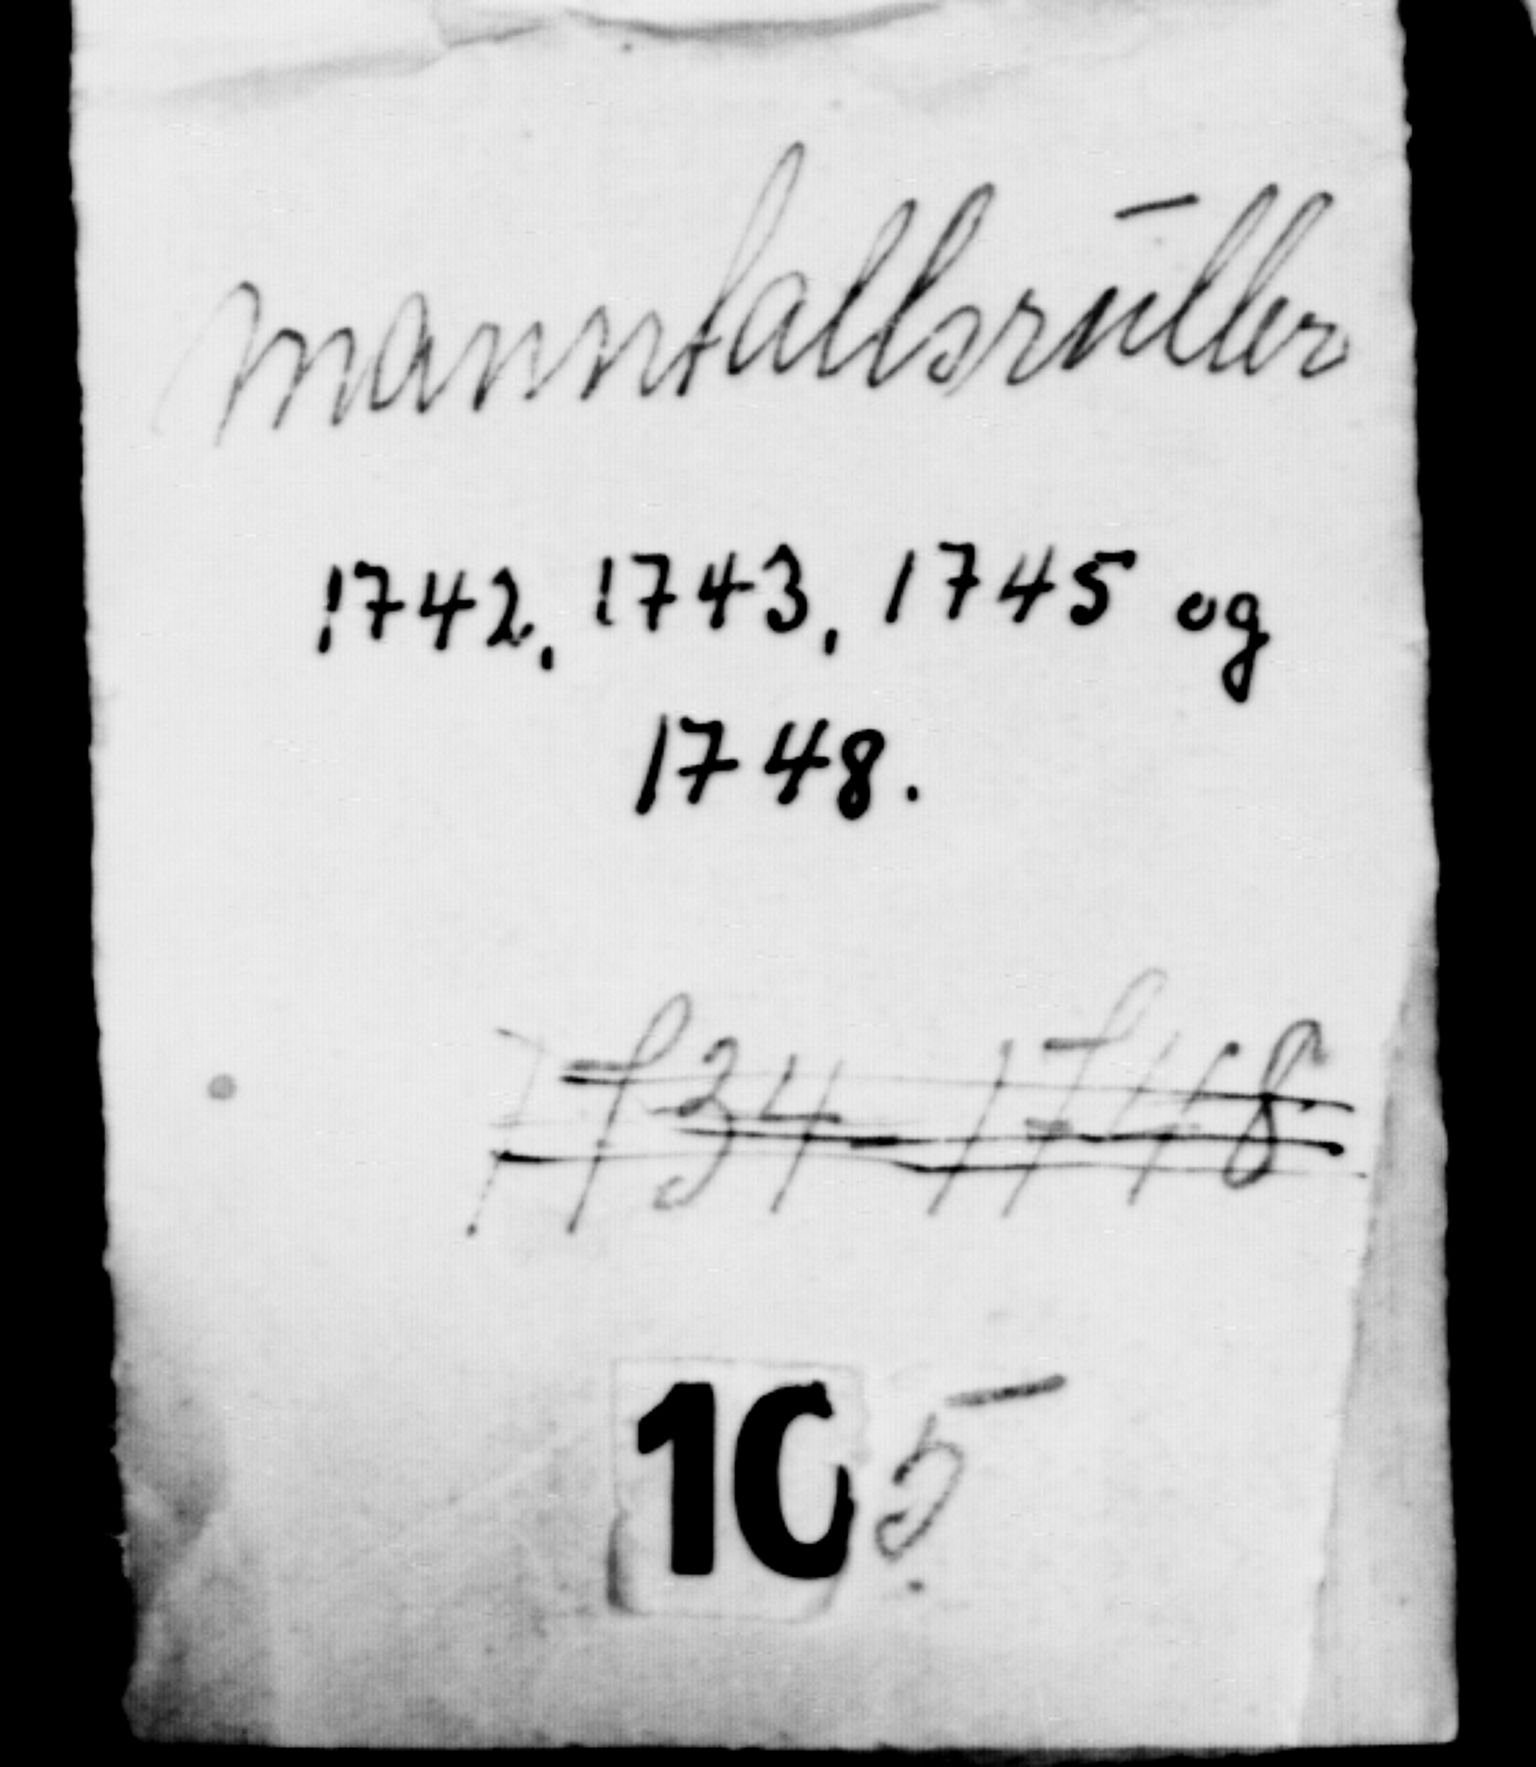 Manntallsruller
1742, 1743, 1745 og
1748.
1734-1748
105